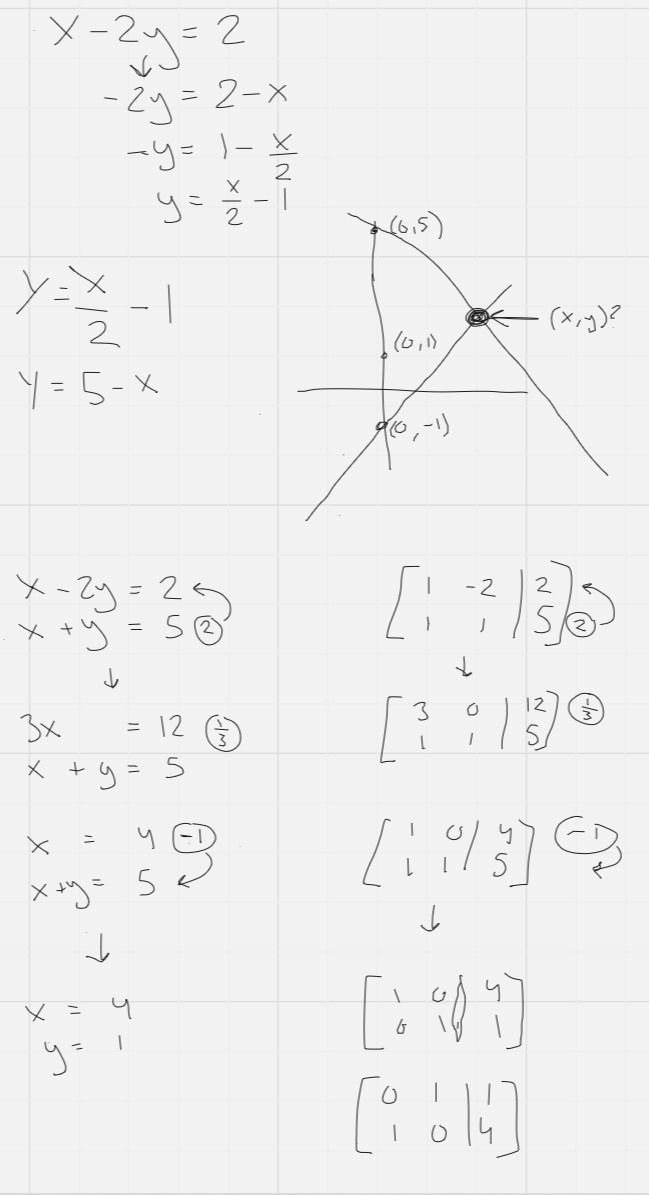 x - 2y = 2
↓
-2y = 2 - x
-y = 1 - x/2
y = x/2 - 1
y = x/2 - 1
y = 5 - x
(0,5)
(x,y)?
(0,1)
(0,-1)
x - 2y = 2
x + y = 5 ②
↓
3x = 12 (1/3)
x + y = 5
x = 4 (-1)
x+y = 5
↓
x = 4
y = 1
[1 -2 | 2]
[1 1 | 5] ②
↓
[3 0 | 12] (1/3)
[1 1 | 5]
[1 0 | 4] (-1)
[1 1 | 5]
↓
[1 0 | 4]
[0 1 | 1]
[0 1 | 1]
[1 0 | 4]